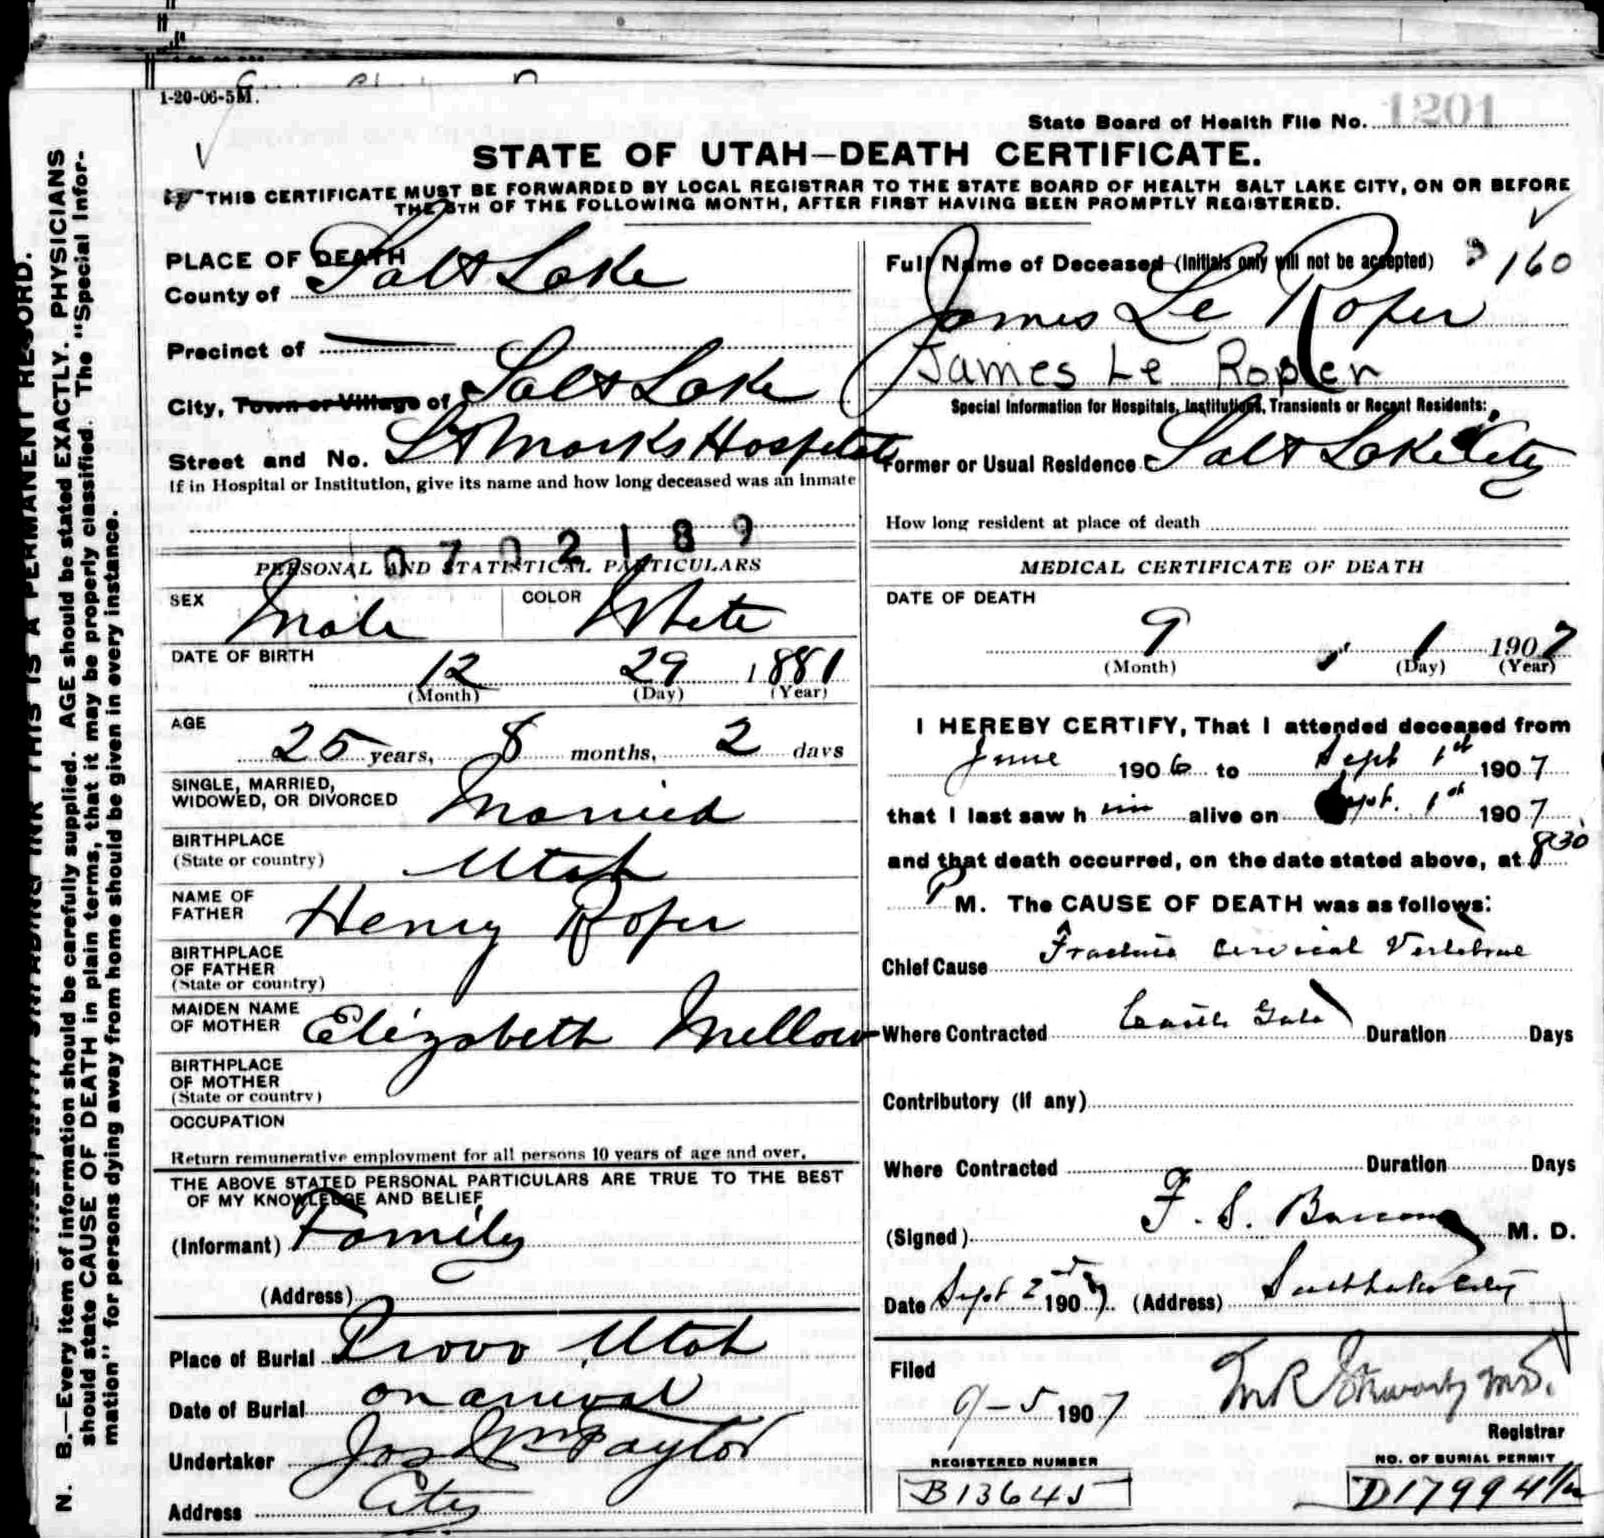 1-20-06-5M.
State Board of Health File No. 1201
STATE OF UTAH—DEATH CERTIFICATE.
THIS CERTIFICATE MUST BE FORWARDED BY LOCAL REGISTRAR TO THE STATE BOARD OF HEALTH SALT LAKE CITY, ON OR BEFORE
THE 5TH OF THE FOLLOWING MONTH, AFTER FIRST HAVING BEEN PROMPTLY REGISTERED.
PLACE OF DEATH
County of Salt Lake
Precinct of
City, Town or Village of Salt Lake
Street and No. St Marks Hospital
If in Hospital or Institution, give its name and how long deceased was an inmate
0702189
PERSONAL AND STATISTICAL PARTICULARS
SEX Male COLOR White
DATE OF BIRTH 12 29 1881
(Month) (Day) (Year)
AGE 25 years, 8 months, 2 days
SINGLE, MARRIED,
WIDOWED, OR DIVORCED Married
BIRTHPLACE
(State or country) Utah
NAME OF
FATHER Henry Roper
BIRTHPLACE
OF FATHER
(State or country)
MAIDEN NAME
OF MOTHER Elizabeth Mellow
BIRTHPLACE
OF MOTHER
(State or country)
OCCUPATION
Return remunerative employment for all persons 10 years of age and over.
THE ABOVE STATED PERSONAL PARTICULARS ARE TRUE TO THE BEST
OF MY KNOWLEDGE AND BELIEF
(Informant) Family
(Address)
Place of Burial Provo Utah
Date of Burial on arrival
Undertaker Jos Wm Taylor
Address City
Full Name of Deceased (Initials only will not be accepted) 160
James Le Roper
James Le Roper
Special Information for Hospitals, Institutions, Transients or Recent Residents:
Former or Usual Residence Salt Lake City
How long resident at place of death
MEDICAL CERTIFICATE OF DEATH
DATE OF DEATH
9 1 1907
(Month) (Day) (Year)
I HEREBY CERTIFY, That I attended deceased from
June 1906 to Sept 1st 1907
that I last saw him alive on Sept. 1st 1907
and that death occurred, on the date stated above, at 830
P M. The CAUSE OF DEATH was as follows:
Chief Cause Fracture Cervical Vertebrae
Where Contracted Castle Gate Duration Days
Contributory (if any)
Where Contracted Duration Days
(Signed) F. S. M. D.
Date Sept 2nd 1907. (Address) Salt Lake City
Filed
9-5 1907
Registrar
REGISTERED NUMBER
B13645
NO. OF BURIAL PERMIT
D17994 1/2
N. B.—Every item of information should be carefully supplied. AGE should be stated EXACTLY. PHYSICIANS
should state CAUSE OF DEATH in plain terms, that it may be properly classified. The "Special Infor-
mation" for persons dying away from home should be given in every instance.
THIS IS A PERMANENT RECORD.